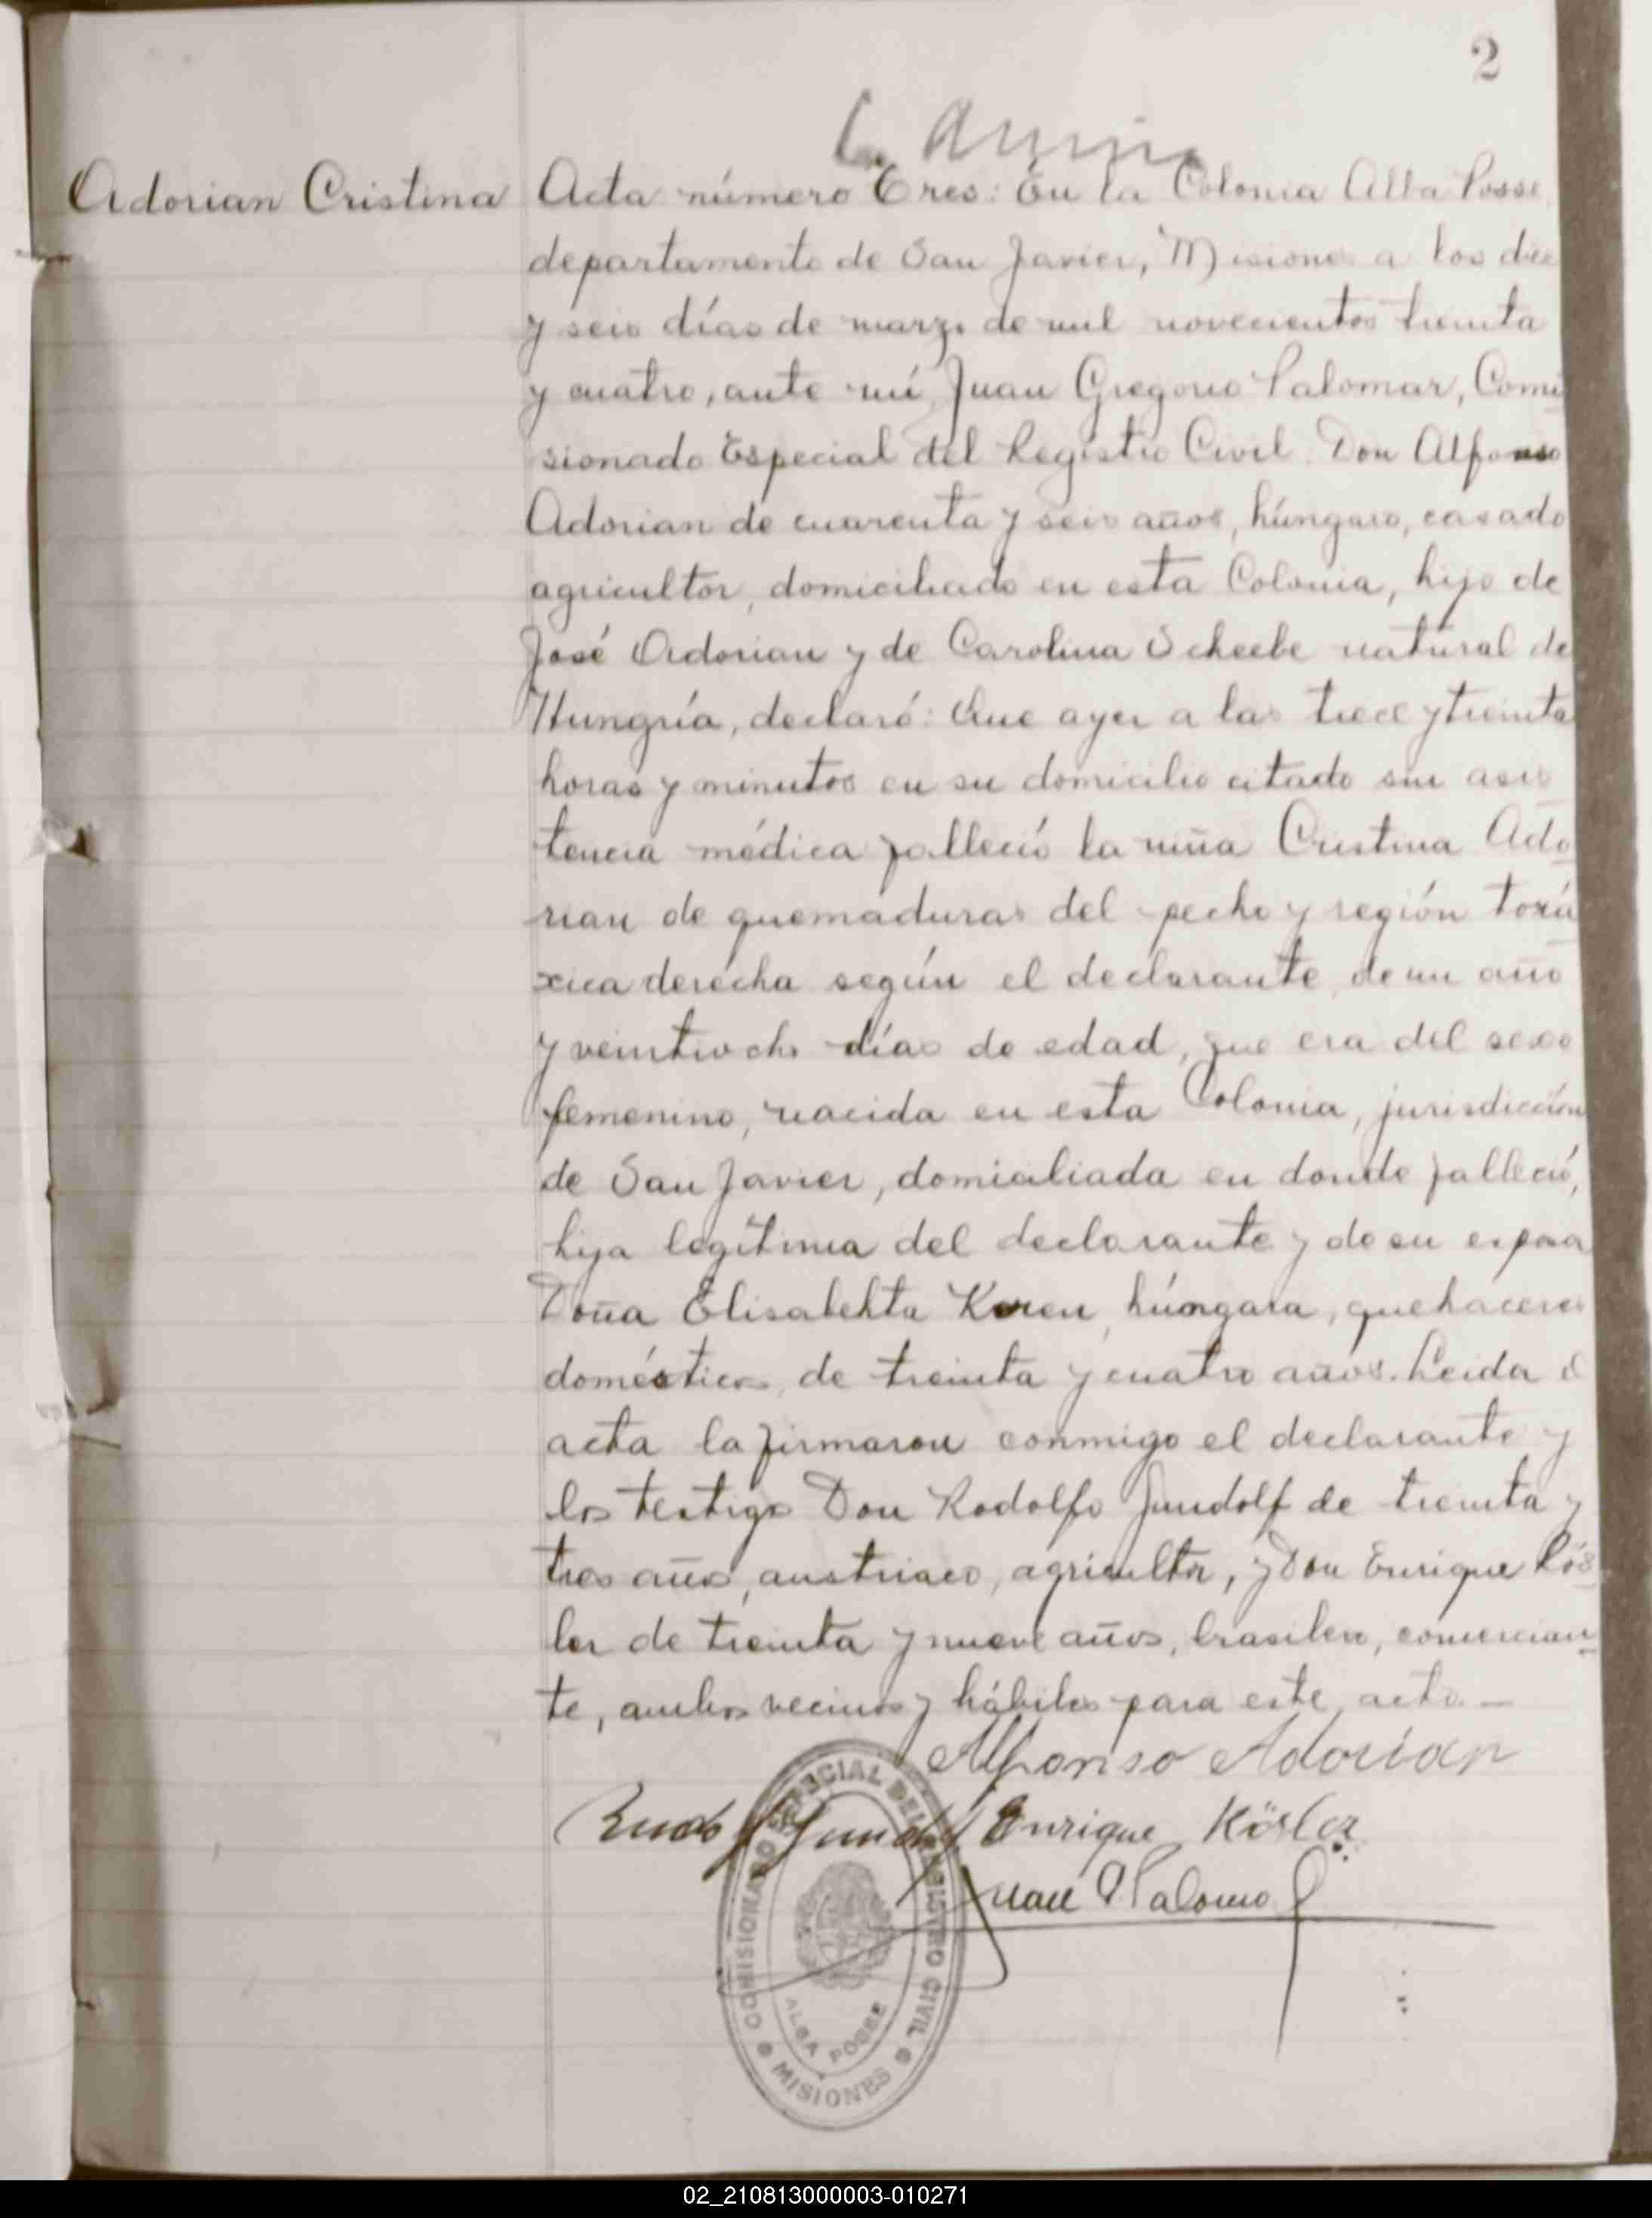 2
Adorian Cristina
Acta número Tres: En la Colonia Alba Posse,
departamento de San Javier, Misiones a los diez
y seis días de marzo de mil novecientos treinta
y cuatro, ante mí, Juan Gregorio Palomar, Comi
sionado Especial del Registro Civil. Don Alfonso
Adorian de cuarenta y seis años, húngaro, casado
agricultor, domiciliado en esta Colonia, hijo de
José Adorian y de Carolina Scheebe natural de
Hungría, declaró: Que ayer a las trece y treinta
horas y minutos en su domicilio citado sin asis
tencia médica falleció la niña Cristina Ado
rian de quemaduras del pecho y región torá
xica derecha según el declarante, de un año
y veintiocho días de edad, que era del sexo
femenino, nacida en esta Colonia, jurisdicción
de San Javier, domialiada en donde falleció,
hija legítima del declarante y de su esposa
Doña Elisabehta Keren, húngara, quehaceres
domésticos, de treinta y cuatro años. Leida el
acta la firmaron conmigo el declarante y
los testigos Don Rodolfo Jundolf de treinta y
tres años, austriaco, agricultor, y Don Enrique Kös
ler de treinta y nueve años, brasilero, comercian
te, ambos vecinos y hábiles para este acto. —
Alfonso Adorian
Enrique Kösler
Juan G Palomar
COMISIONADO ESPECIAL DEL REGISTRO CIVIL
ALBA POSSE
MISIONES
02_210813000003-010271